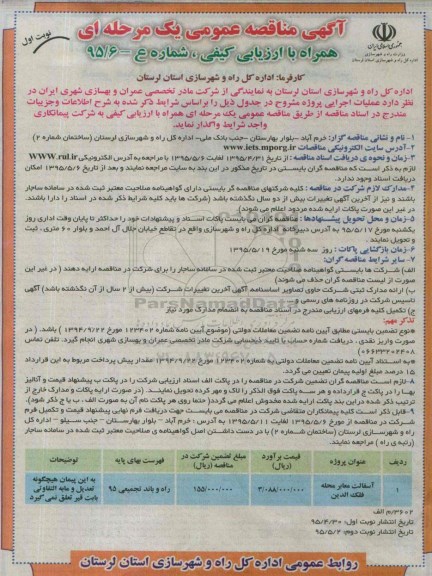 آگهی مناقصه عمومی یک مرحله ای
نوبت اول
همراه با ارزیابی کیفی ، شماره ع – ۹۵/۶
جمهوری اسلامی ایران
وزارت راه و شهرسازی
اداره کل راه و شهرسازی استان لرستان
کارفرما: اداره کل راه و شهرسازی استان لرستان
اداره کل راه و شهرسازی استان لرستان به نمایندگی از شرکت مادر تخصصی عمران و بهسازی شهری ایران در
نظر دارد عملیات اجرایی پروژه مشروح در جدول ذیل را براساس شرایط ذکر شده به شرح اطلاعات وجزییات
مندرج در اسناد مناقصه از طریق مناقصه عمومی یک مرحله ای همراه با ارزیابی کیفی به شرکت پیمانکاری
واجد شرایط واگذار نماید.
۱- نام و نشانی مناقصه گزار: خرم آباد –بلوار بهارستان –جنب بانک ملی– اداره کل راه و شهرسازی لرستان (ساختمان شماره ۲)
۲-آدرس سایت الکترونیکی مناقصات www.iets.mporg.ir
۳-زمان و نحوه ی دریافت اسناد مناقصه : از تاریخ ۱۳۹۵/۴/۳۱ لغایت ۱۳۹۵/۵/۶ با مراجعه به آدرس الکترونیکی WWW.rul.ir
لازم به ذکر است که مناقصه گران بایستی در تاریخ مذکور در این بند به سایت مراجعه نمایند و بعد از تاریخ ۱۳۹۵/۵/۶ امکان
دریافت اسناد وجود ندارد.
۴-مدارک لازم شرکت در مناقصه : کلیه شرکتهای مناقصه گر بایستی دارای گواهینامه صلاحیت معتبر ثبت شده در سامانه ساجار
باشند و نیز از آخرین آگهی تغییرات بیش از دو سال نگذشته باشد (شرکت ها باید کلیه شرایط ذکر شده در اسناد را دارا باشند.
در غیر این صورت پاکات ارایه شده مردود اعلام می شوند)
۵-زمان و محل تحویل پیشنهادها : مناقصه گران می بایست پاکات اسناد و پیشنهادات خود را حداکثر تا پایان وقت اداری روز
یکشنبه مورخ ۱۳۹۵/۵/۱۷ به آدرس دبیرخانه اداره کل راه و شهرسازی واقع در تقاطع خیابان جلال آل احمد و بلوار ۶۰ متری، ثبت
و تحویل نمایند .
۶-زمان بازگشایی پاکات : روز سه شنبه مورخ ۱۳۹۵/۵/۱۹
۷– سایر شرایط مناقصه گران:
الف) شرکت ها بایستی گواهینامه صلاحیت معتبر ثبت شده در سامانه ساجار را برای شرکت در مناقصه ارایه دهند ( در غیر این
صورت از لیست مناقصه گران حذف می شوند)
ب) ارائه مدارک ثبتی شرکت حاوی تصاویر اساسنامه آگهی آخرین تغییرات شرکت (بیش از ۲ سال از آن نگذشته باشد) آگهی
تاسیس شرکت در روزنامه های رسمی و
ج) تکمیل کلیه فرمهای ارزیابی مندرج در اسناد مناقصه به انضمام مدارک مورد نیاز
تذکر مهم:
۵نوع تضمین بایستی مطابق آیین نامه تضمین معاملات دولتی (موضوع آیین نامه شماره ۱۲۳۴۰۲ مورخ ۱۳۹۴/۹/۲۲ ) باشد. ( در
صورت واریز نقدی ، دریافت شماره حساب با تایید ذیحسابی شرکت مادر تخصصی عمران و بهسازی شهری انجام گیرد. تلفن تماس
۰۶۶۳۳۲۰۲۴۰۸)
۵به استناد آیین نامه تضمین معاملات دولتی به شماره ۱۲۳۴۰۲ مورخ ۱۳۹۴/۹/۲۲ مقدار پیش پرداخت مربوط به این قرارداد
۱۵ درصد مبلغ اولیه پیمان تعیین می گردد.
۸-لازم است مناقصه گران تضمین شرکت در مناقصه را در پاکت الف اسناد ارزیابی شرکت را در پاکت ب پیشنهاد قیمت و آنالیز
بها را در پاکت ج قرارداده و هر سه پاکت فوق الذکر را لاک و مهر کرده تحویل نمایند. (در صورت ارایه پاکات و مدارک خارج از
ترتیب ذکر شده دراین بند پاکت ارایه شده مخدوش اعلام می گردد( حتما روی هر پاکت نام آن به صورت الف ، ب یا ج ذکر شود).
۹-قابل ذکر است کلیه پیمانکاران متقاضی شرکت در مناقصه می بایست جهت دریافت فرم نهایی پیشنهاد قیمت و تکمیل فرم
شرکت در مناقصه از مورخ ۱۳۹۵/۵/۶ لغایت ۱۳۹۵/۵/۱۱ به آدرس : خرم آباد – بلوار بهارستان – جنب سیلو – اداره کل
راه و شهرسازی لرستان (ساختمان شماره ۲) با در دست داشتن اصل گواهینامه ی صلاحیت معتبر ثبت شده در سامانه ساجار
(رتبه ی راه ) مراجعه نمایند.
ردیف عنوان پروژه قیمت برآورد (ریال) مبلغ تضمین شرکت در مناقصه (ریال) فهرست بهای پایه توضیحات
۱ آسفالت معابر محله فلک الدین ۳/۰۸۸/۰۰۰/۰۰۰ ۱۵۵/۰۰۰/۰۰۰ راه و باند تجمیعی ۹۵ به این پیمان هیچگونه تعدیل و مابه التفاوتی بابت قیر تعلق نمی گیرد
۳۶۰۲/م الف
تاریخ انتشار نوبت اول: ۹۵/۴/۳۰
تاریخ انتشار نوبت دوم: ۹۵/۵/۲
روابط عمومی اداره کل راه و شهرسازی استان لرستان